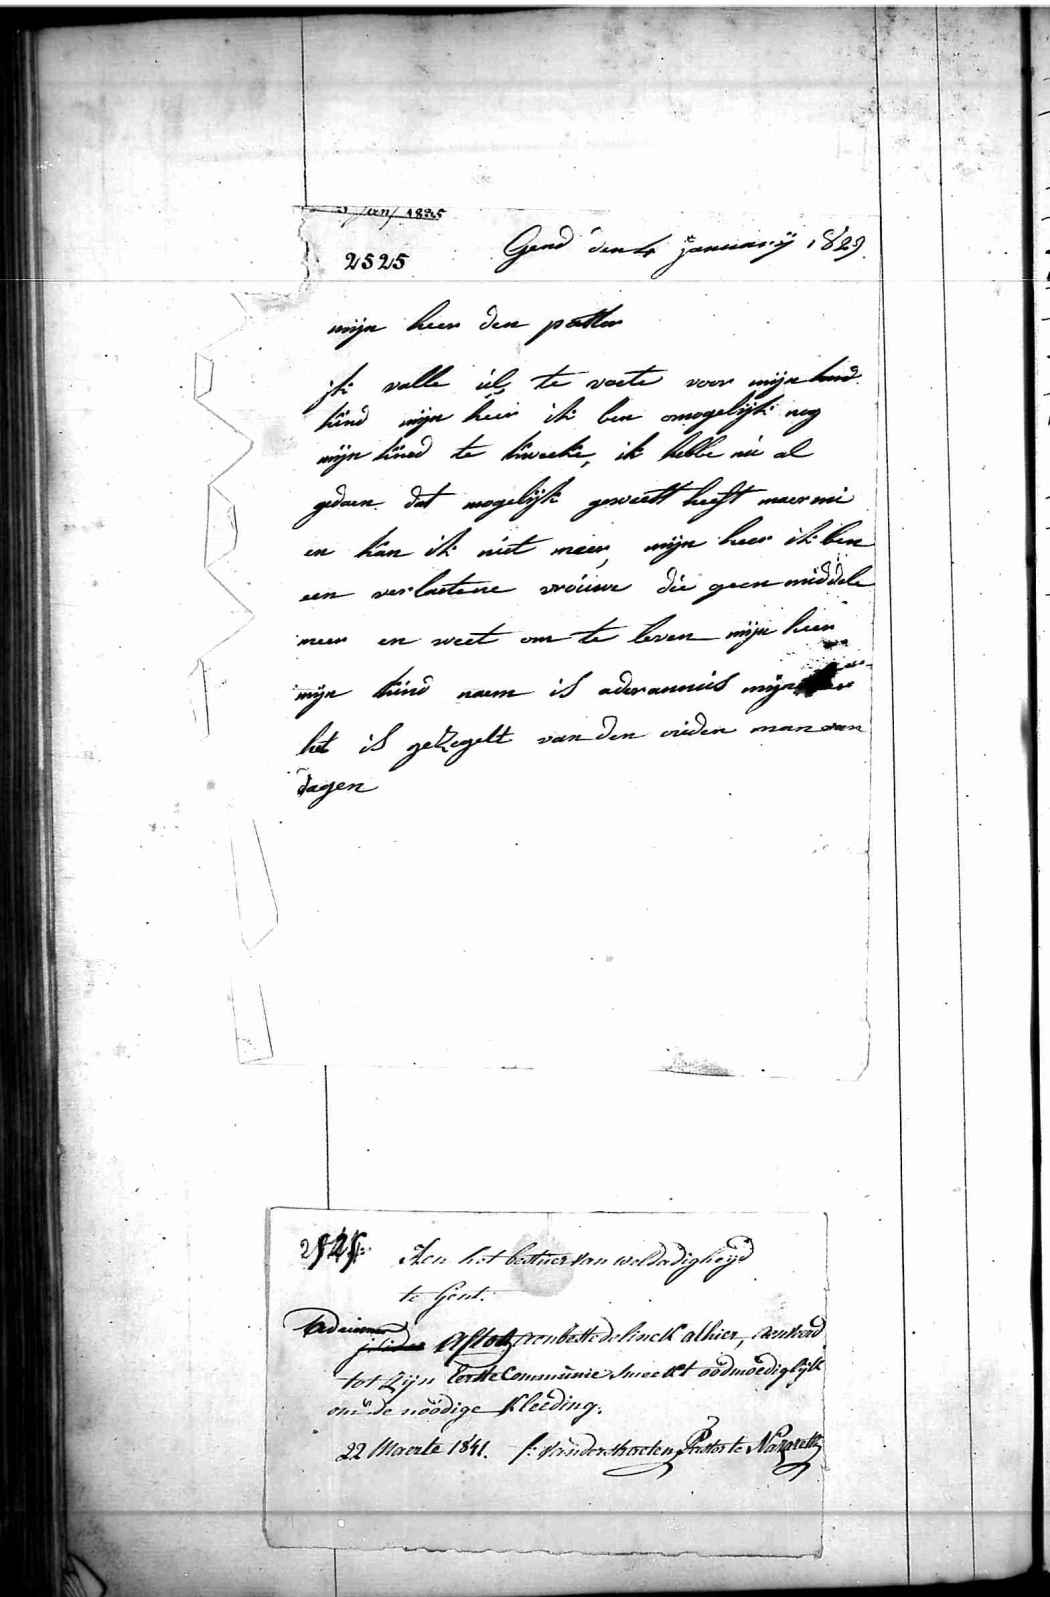 2525
Gend den 4 january 1829
mijn heer den paster
ik valle ul, te voete voor mijn
kind mijn heer ik ben omogelijk nog
mijn kind te kweeke, ik hebbe nu al
gedaen dat mogelijk geweest heeft maer nu
en kan ik niet meer, mijn heer ik ben
een verlaetene vrouwe die geen middele
meer en weet om te leven mijn heer
mijn kind naem is aderannus mijn
het is geKegelt van den ouden man van
dagen
2525
Aen het bestuer van weldadigheyd
te Gent.
alhier, aenveerd
tot zijn Eerste Communie smeekt oodmoediglijk
om de noodige Kleeding.
22 Maerte 1841. Pastor te Nazareth